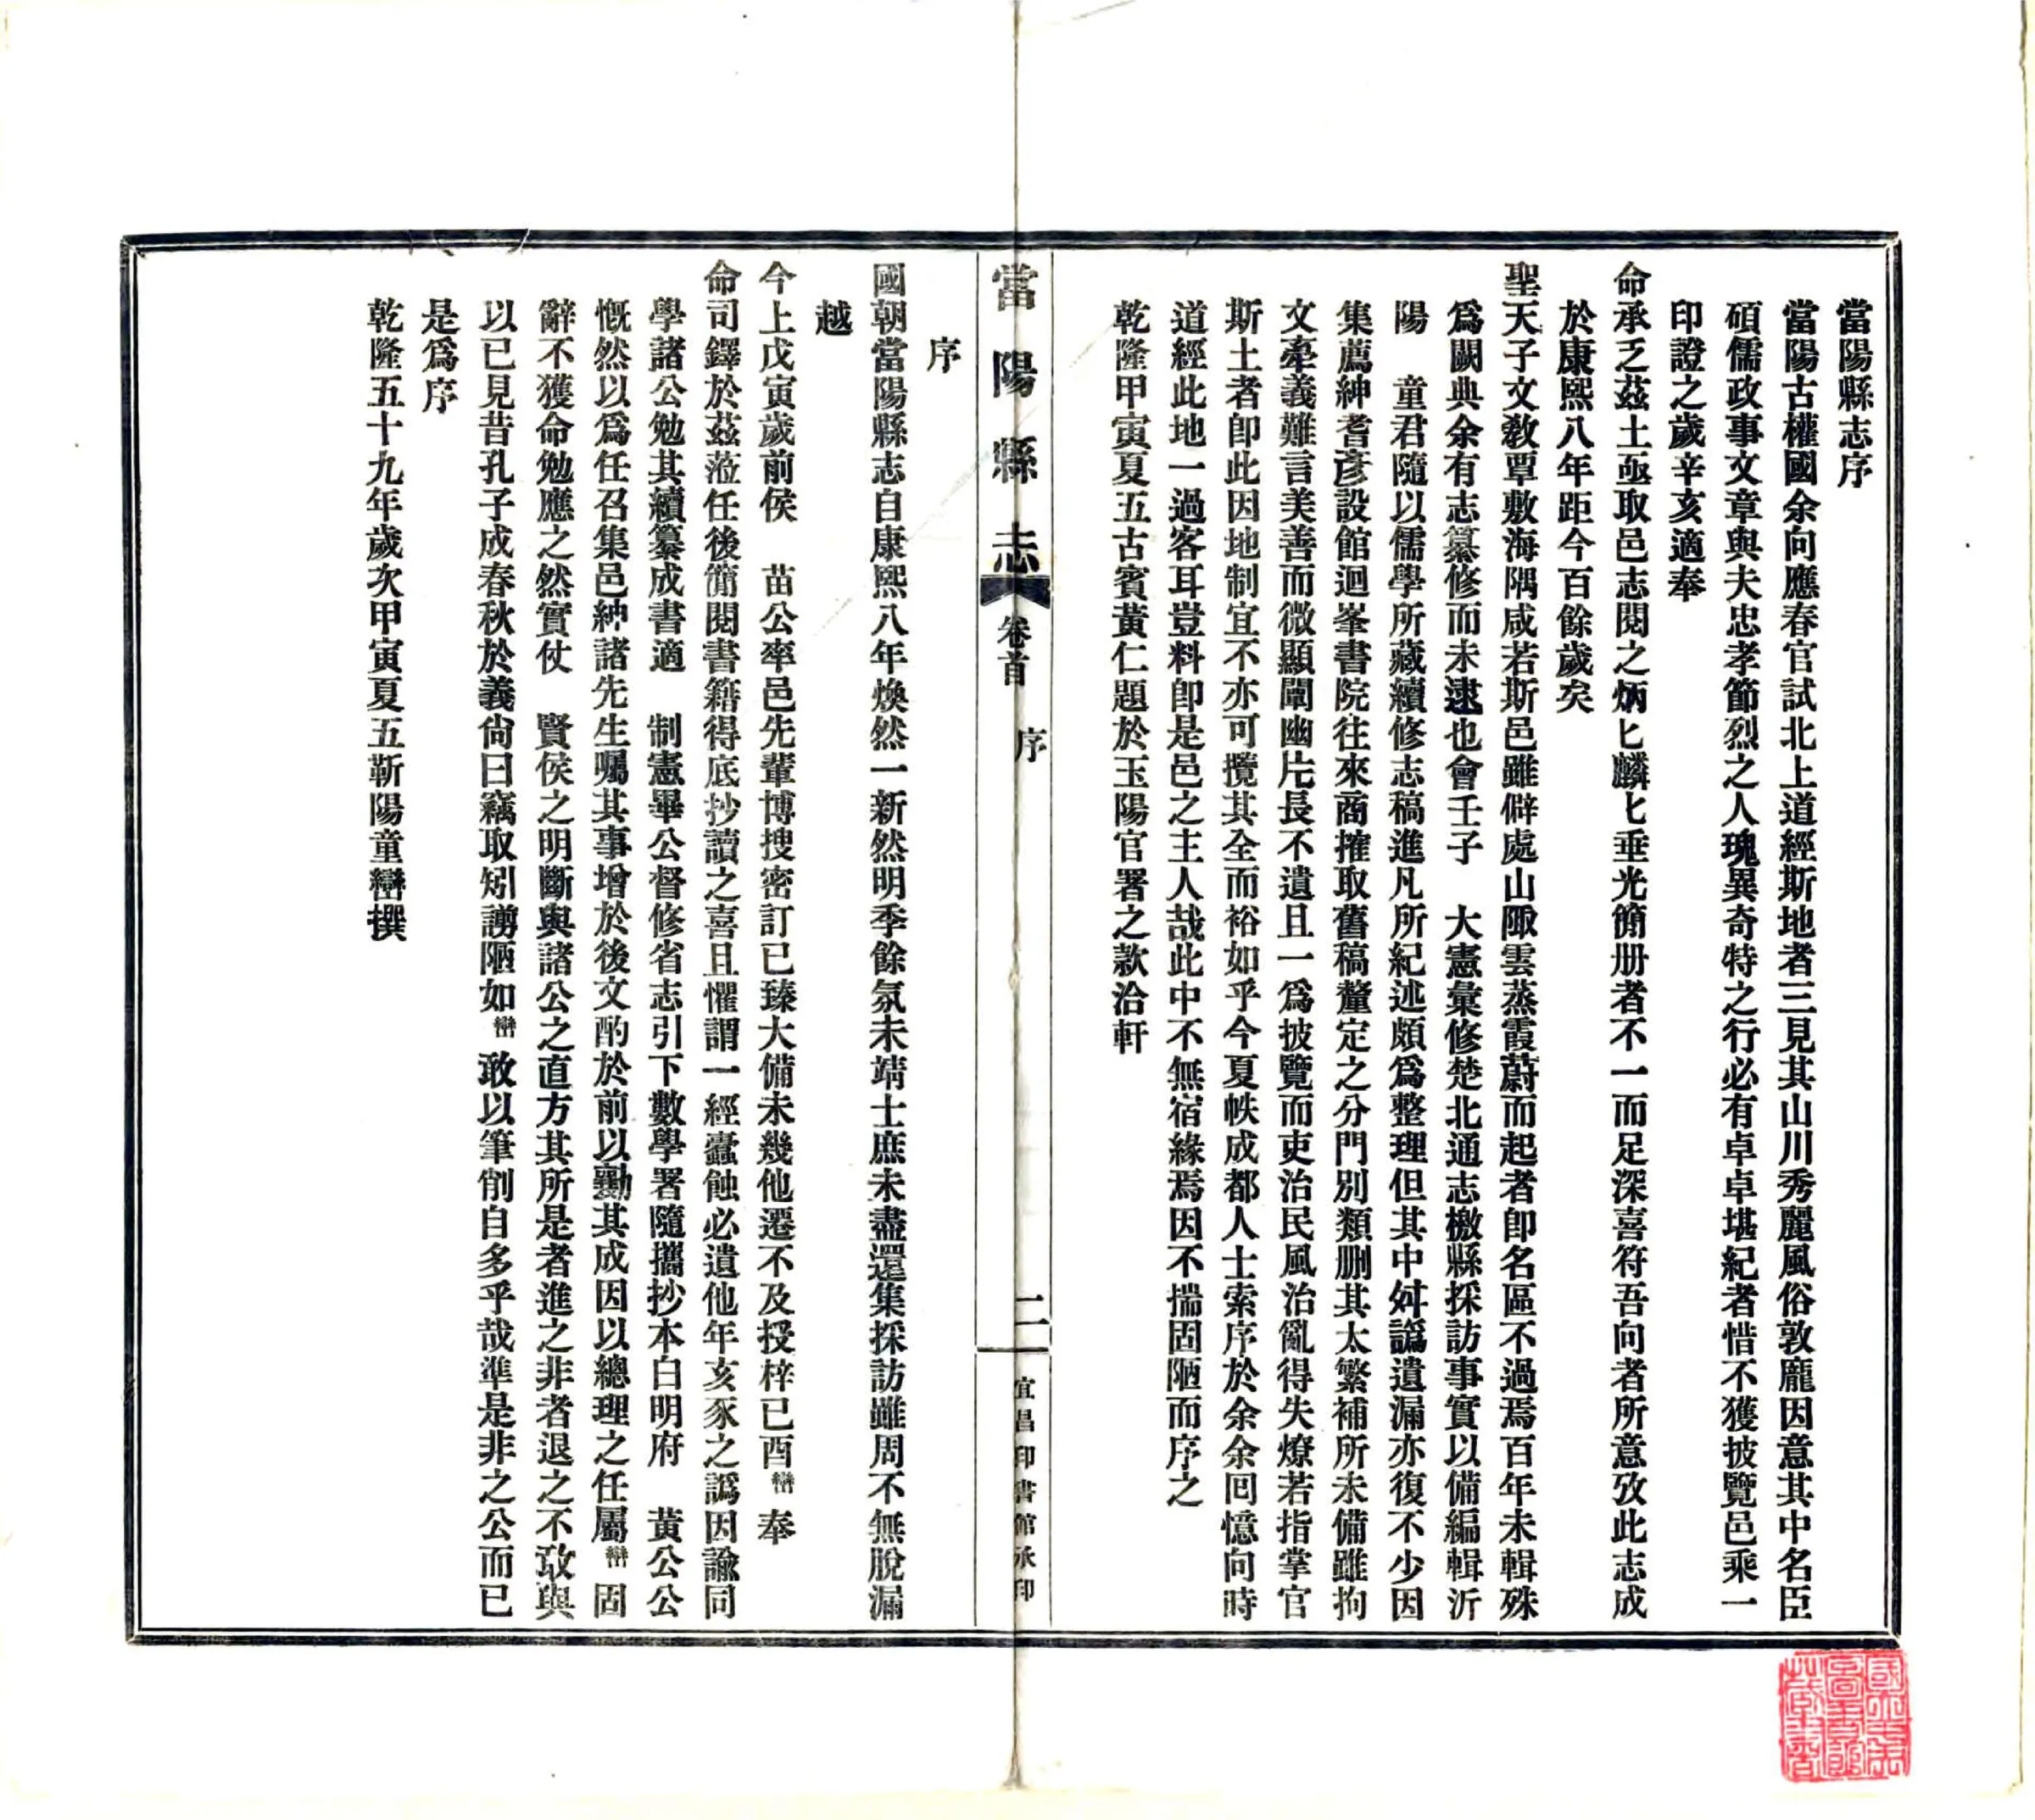 當陽縣志序
當陽古權國余向應春官試北上道經斯地者三見其山川秀麗風俗敦龐因意其中名臣
碩儒政事文章與夫忠孝節烈之人瑰異奇特之行必有卓卓堪紀者惜不獲披覽邑乘一
印證之歲辛亥適奉
命承乏茲土亟取邑志閱之炳匕麟匕垂光簡册者不一而足深喜符吾向者所意攷此志成
於康熙八年距今百餘歲矣
聖天子文敎覃敷海隅咸若斯邑雖僻處山陬雲蒸霞蔚而起者卽名區不過焉百年未輯殊
爲闕典余有志纂修而未逮也會壬子　大憲彙修楚北通志檄縣採訪事實以備編輯沂
陽　童君隨以儒學所藏續修志稿進凡所紀述頗爲整理但其中舛譌遺漏亦復不少因
集薦紳耆彥設館迴峯書院往來商搉取舊稿釐定之分門別類删其太繁補所未備雖拘
文牽義難言美善而微顯闡幽片長不遺且一爲披覽而吏治民風治亂得失燎若指掌官
斯土者卽此因地制宜不亦可攬其全而裕如乎今夏帙成都人士索序於余余囘憶向時
道經此地一過客耳豈料卽是邑之主人哉此中不無宿緣焉因不揣固陋而序之
乾隆甲寅夏五古賓黃仁題於玉陽官署之款洽軒
當陽縣志
卷首
序
二
宜昌印書館承印
序
國朝當陽縣志自康熙八年煥然一新然明季餘氛未靖士庶未盡還集採訪雖周不無脫漏
越
今上戊寅歲前侯　苗公率邑先輩博搜密訂已臻大備未幾他遷不及授梓已酉巒奉
命司鐸於茲蒞任後簡閱書籍得底抄讀之喜且懼謂一經蠹蝕必遺他年亥豕之譌因諭同
學諸公勉其續纂成書適　制憲畢公督修省志引下數學署隨攜抄本白明府　黃公公
慨然以爲任召集邑紳諸先生囑其事增於後文酌於前以勷其成因以總理之任屬巒固
辭不獲命勉應之然實仗　賢侯之明斷與諸公之直方其所是者進之非者退之不敢與
以已見昔孔子成春秋於義尙曰竊取矧謭陋如巒敢以筆削自多乎哉準是非之公而已
是爲序
乾隆五十九年歲次甲寅夏五靳陽童巒撰